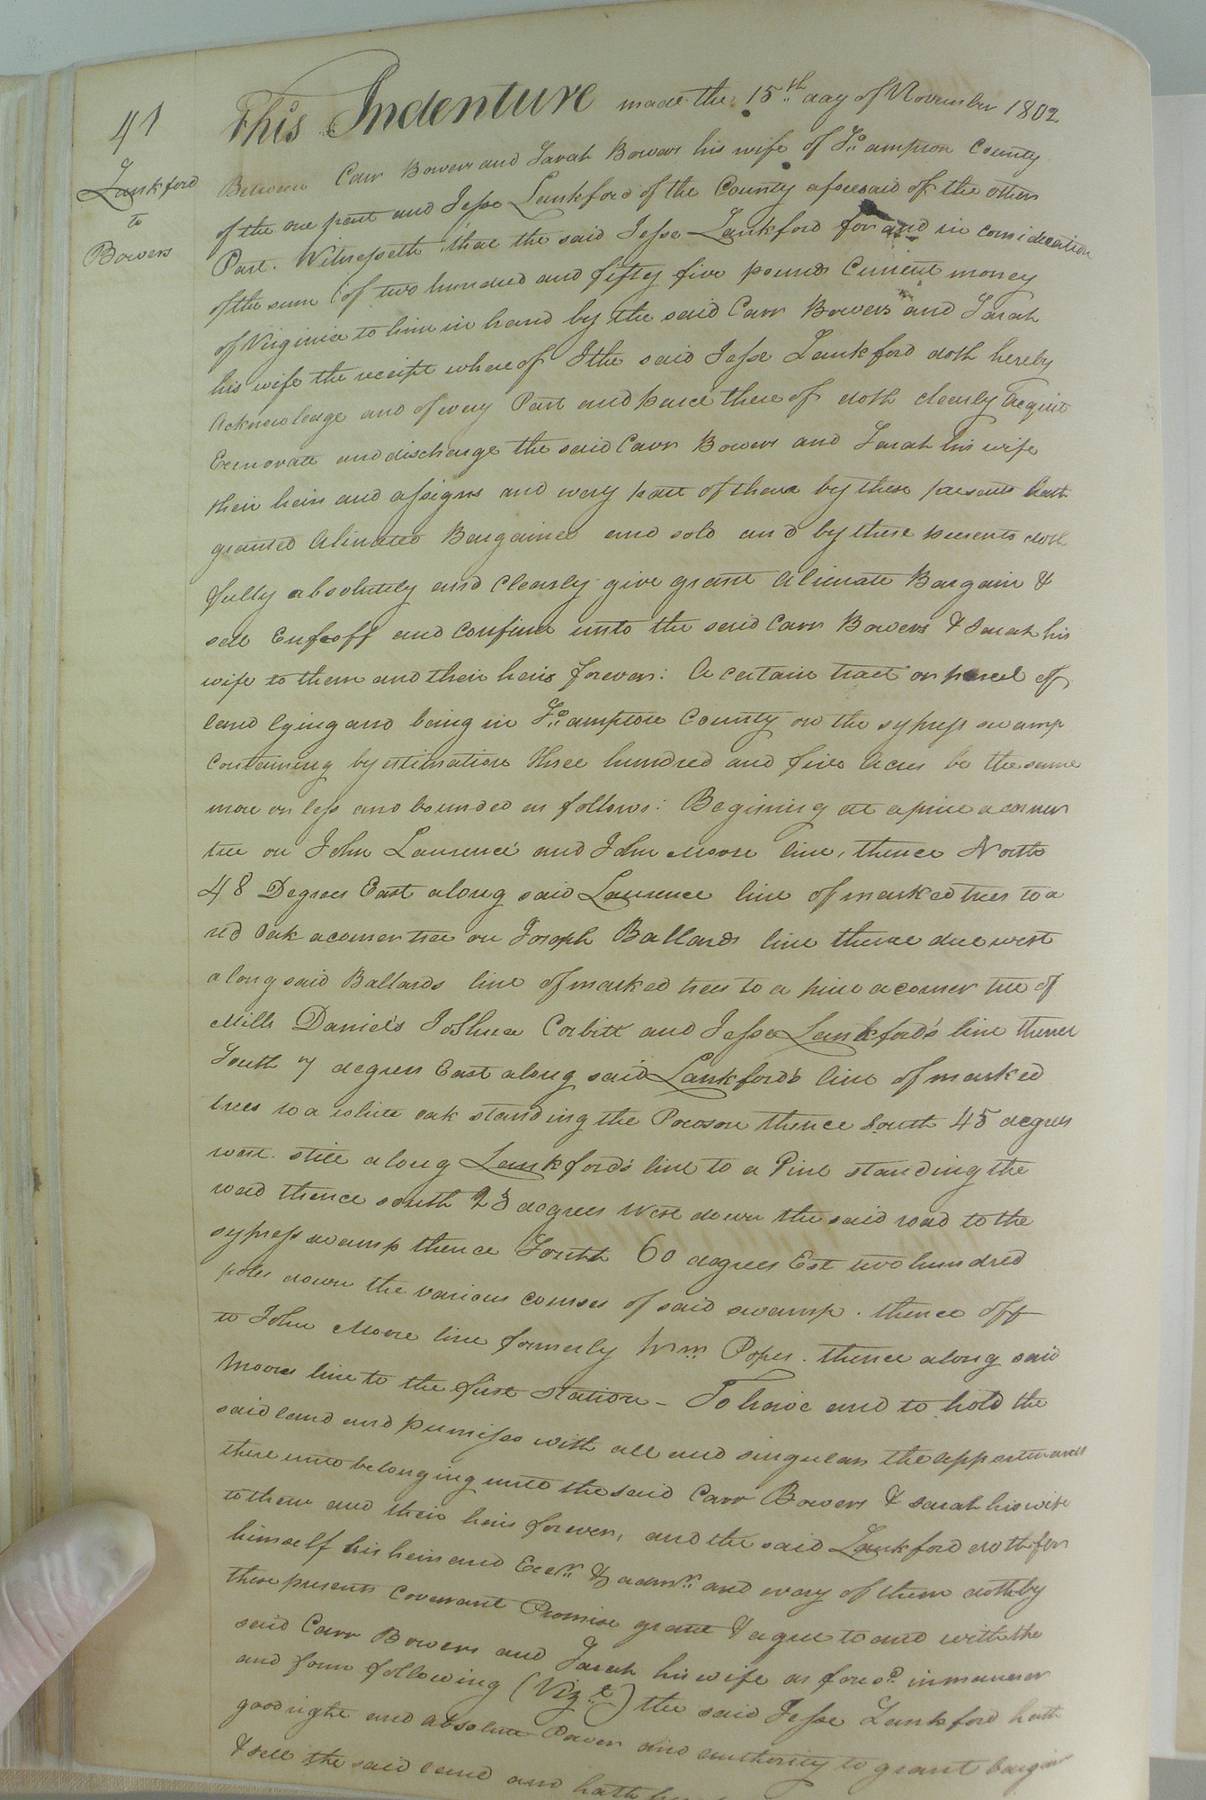 41
Lankford
to
Bowers
This Indenture made the 15th day of November 1802
Between Carr Bowers and Sarah Bowers his wife of So:ampton County
of the one part and Jesse Lankford of the County aforesaid of the other
Part. Witnesseth that the said Jesse Lankford for and in consideration
of the sum of two hundred and fifty five pounds Current money
of Virginia to him in hand by the said Carr Bowers and Sarah
his wife the receipt whereof I the said Jesse Lankford doth hereby
Acknowledge and of every Part and parce thereof doth clearly Acquit
Exnorate and discharge the said Carr Bowers and Sarah his wife
their heirs and assigns and every part of them by these presents hath
granted Alinated Bargained and sold and by these presents doth
fully absolutely and clearly give grant Alinate Bargain &
sell Enfeoff and confirm unto the said Carr Bowers & Sarah his
wife to them and their heirs forever: A certain tract or parcel of
land lying and being in So:ampton County on the sypress swamp
Containing by estimation three hundred and five Acres be the same
more or less and bounded as follows: Begining at a pine a corner
tree on John Laurence and John Moore line, thence North
48 Degrees East along said Laurence line of marked trees to a
red oak a corner tree on Joseph Ballards line thence due west
along said Ballards line of marked trees to a pine a corner tree of
Mills Daniels Joshua Corbitt and Jesse Lankford's line thence
South 7 degrees East along said Lankford's line of marked
trees to a white oak standing the Pocoson thence South 45 degrees
west still along Lankford's line to a Pine standing the
road thence south 23 degrees West down the said road to the
sypress swamp thence South 60 degrees Est two hundred
poles down the various courses of said swamp. thence off
to John Moore line formerly Wm Popes. thence along said
Moores line to the first station - To have and to hold the
said land and premisses with all and singular the appertunances
there unto belonging unto the said Carr Bowers & Sarah his wife
to them and their heirs forever, and the said Lankford doth for
himself his heirs and Exers & admrs and every of them doth by
these presents Covenant Promise grant & agree to and with the
said Carr Bowers and Sarah his wife as foresd. in manner
and form following (Vizt) the said Jesse Lankford hath
good right and absolute Power and authority to grant bargain
& sell the said land and hath